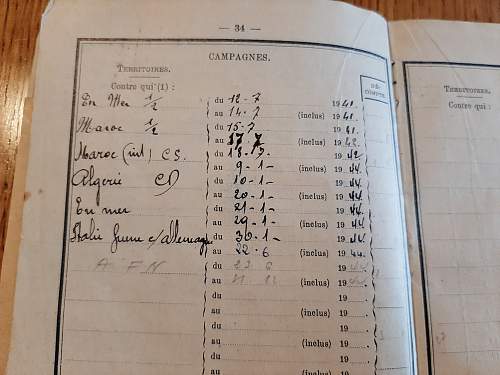 — 34 —
CAMPAGNES.
TERRITOIRES.
Contre qui (1) :
DÉ-
COMPTE.
En Mer 1/2 du 12-7 1941.
au 14-7 (inclus) 1941.
Maroc 1/2 du 15-7 1941.
au 17-7 (inclus) 1942
Maroc (int) CS. du 18-7- 1942
au 9-1- (inclus) 1944.
Algerie CD du 10-1- 1944.
au 20-1- (inclus) 1944.
En mer du 21-1- 1944.
au 29-1- (inclus) 1944.
Italie guerre c/allemagne du 30-1- 1944.
au 22-6 (inclus) 1944.
A F N du 23 6 1944
au (inclus) 194
du 19
au (inclus) 19
du 19
au (inclus) 19
du 19
au (inclus) 19
TERRITOIRES.
Contre qui :